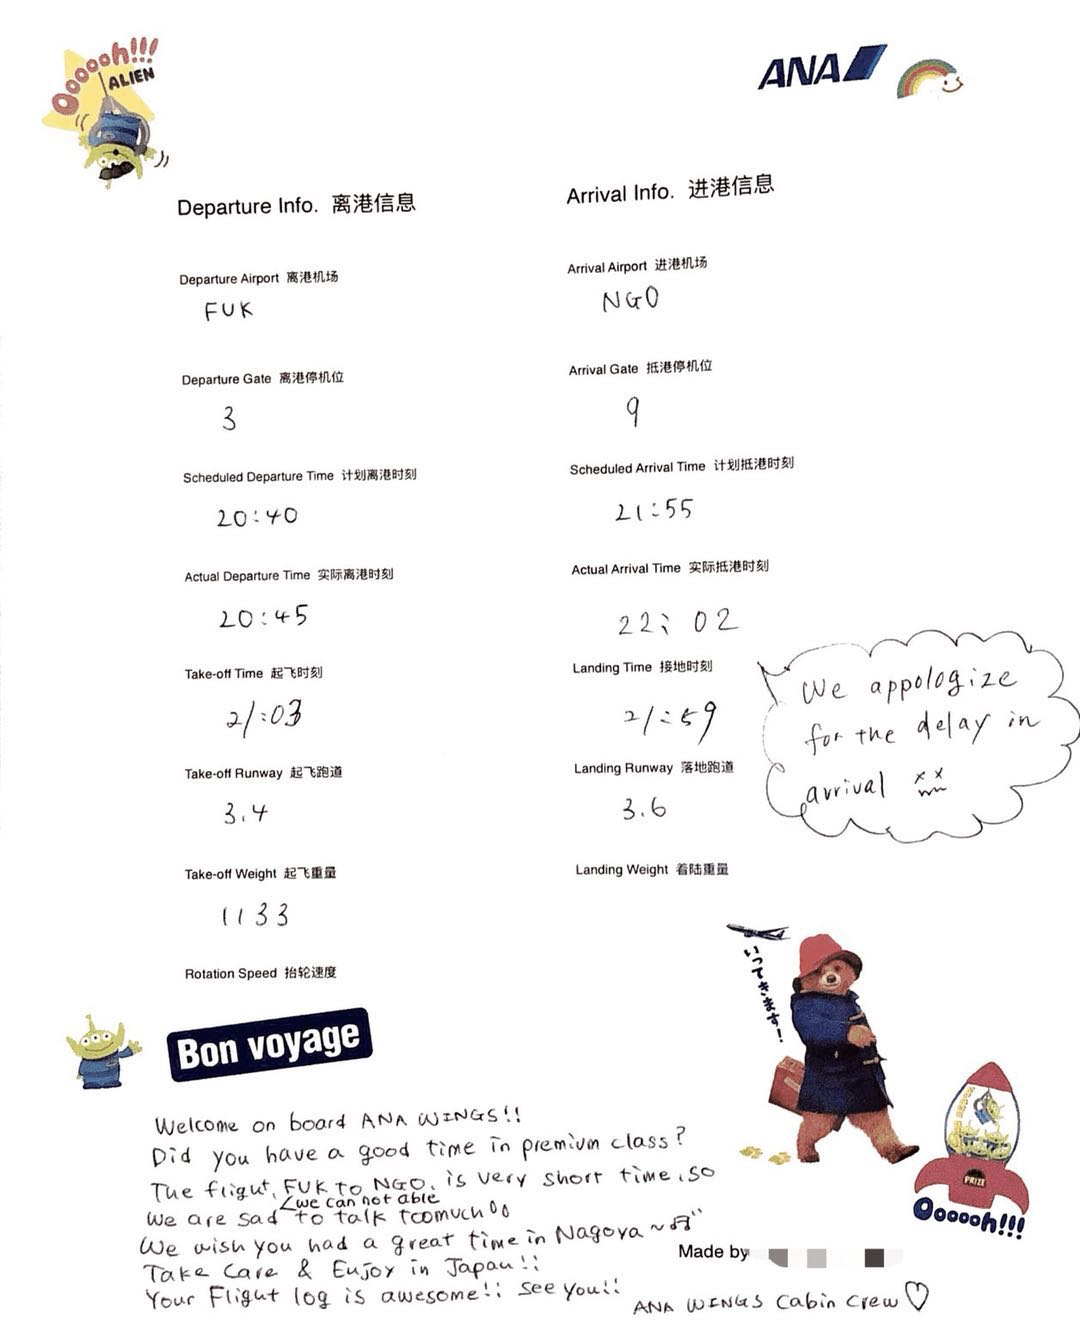 Oooooh!!!
ALIEN
ANA
Departure Info. 离港信息
Arrival Info. 进港信息
Departure Airport 离港机场
FUK
Arrival Airport 进港机场
NGO
Departure Gate 离港停机位
3
Arrival Gate 抵港停机位
9
Scheduled Departure Time 计划离港时刻
20:40
Scheduled Arrival Time 计划抵港时刻
21:55
Actual Departure Time 实际离港时刻
20:45
Actual Arrival Time 实际抵港时刻
22:02
Take-off Time 起飞时刻
21:03
Landing Time 接地时刻
21:59
We appologize
for the delay in
arrival
Take-off Runway 起飞跑道
3.4
Landing Runway 落地跑道
3.6
Take-off Weight 起飞重量
1133
Landing Weight 着陆重量
Rotation Speed 抬轮速度
いってきます!
Bon voyage
Welcome on board ANA WINGS!!
Did you have a good time in premium class?
The flight, FUK to NGO, is very short time, so
we can not able
We are sad to talk toomuch
We wish you had a great time in Nagoya~
Take Care & Enjoy in Japan!!
Your Flight log is awesome!! See you!!
PRIZE
Oooooh!!!
Made by
ANA WINGS Cabin Crew♡